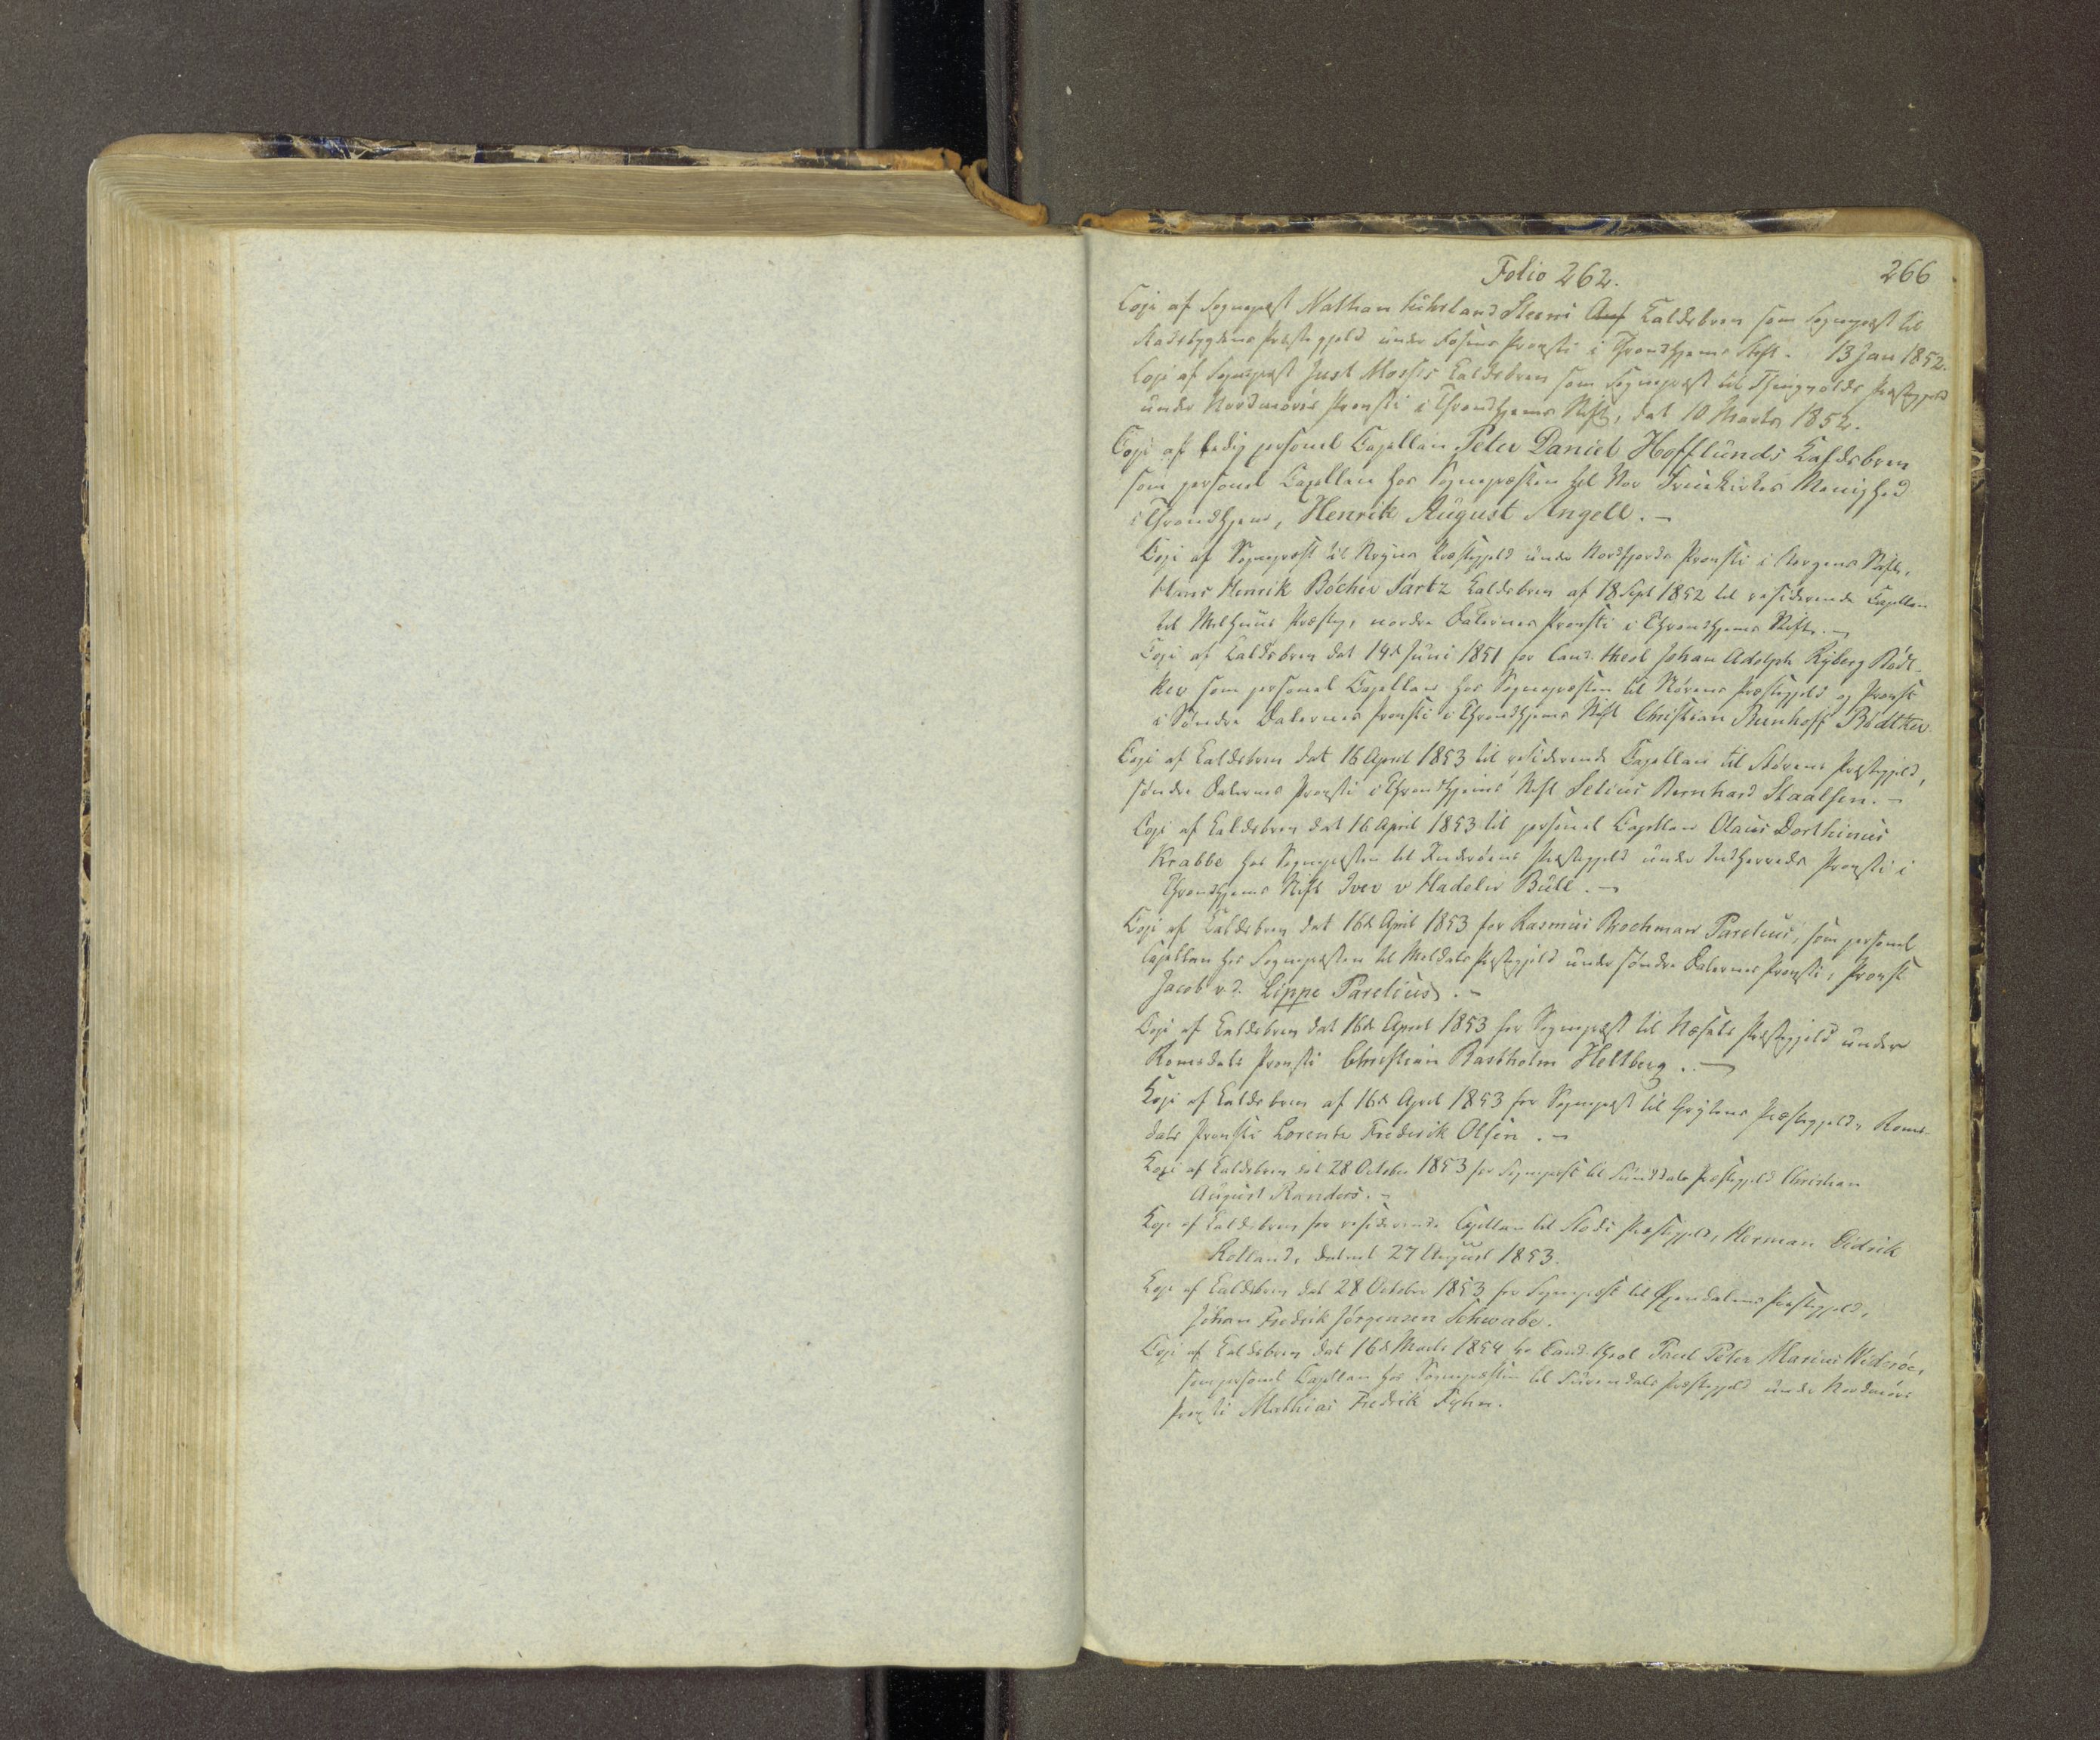 Folio 262.
266
Copi af Sognepræst Nathan Steens Kaldsbrev som Sognepræst til
Stadsbygdens Præstegjeld under Fosens Provsti i Throndhjems Stift. 13 Jan 1852.
Copi af Sognepræst Just Kaldsbrev som Sognepræst til Præstegjeld
under Nordmøre's Provsti i Throndhjems Stift, dat 10 Marts 1852.
Copi af personel Capellan Peter Daniel Hofflunds Kaldsbrev
som personel Capellan hos Sognepræsten til Vor Fruekirkes Menighed
i Throndhjem, Henrik August Angell. –
Copi af Sognepræst til Præstegjeld under Nordfjords Provsti i Bergens Stift,
Hans Henrik Bøcher Sartz Kaldsbrev af 18 Sept 1852 til residerende Capellan
til Melhuus Præsteg, nordre Dalernes Provsti i Throndhjems Stift. –
Copi af Kaldsbrev dat 14d Juni 1851 for Cand. theol Johan Adolph Ryberg Bødt-
ker som personel Capellan hos Sognepræsten til Størens Præstegjeld og Provst
i Søndre Dalernes Provsti i Throndhjems Stift Christian Bødtker.
Copi af Kaldsbrev dat 16 April 1853 til residerende Capellan til Størens Præstegjeld,
søndre Dalernes Provsti i Throndhjems Stift Selius Bernhard Staalsen. –
Copi af Kaldsbrev dat 16 April 1853 til personel Capellan Olaus Dorthinus
Krabbe hos Sognepræsten til Inderøens Præstegjeld under Indherreds Provsti i
Throndhjems Stift Iver v Hadeler Bull. –
Copi af Kaldsbrev dat 16de April 1853 for Rasmus Brochman Parelius, som personel
Capellan hos Sognepræsten til Meldals Præstegjeld under søndre Dalernes Provsti, Provst
Jacob v. d. Lippe Parelius. –
Copi af Kaldsbrev dat 16de April 1853 for Sognepræst til Næssets Præstegjeld under
Romsdals Provsti Christian Bastholm Heltberg. –
Copi af Kaldsbrev af 16de April 1853 for Sognepræst til Grytens Præstegjeld, Roms-
dals Provsti Lorents Frederik Olsen. –
Copi af Kaldsbrev dat 28 October 1853 for Sognepræst til Sunddals Præstegjeld Christian
August Randers. –
Copi af Kaldsbrev for residerende Capellan til Præstegjeld, Herman Didrik
Rolland, dateret 27 August 1853.
Copi af Kaldsbrev dat 28 October 1853 for Sognepræst til Præstegjeld,
Johan Fredrik Jørgensen Schwabe.
Copi af Kaldsbrev dat 16de Marts 1854 for Cand. theol Paul Peter Marius Widerøe,
som personel Capellan hos Sognepræsten til Surendals Præstegjeld under Nordmørs
Provsti Mathias Fredrik Fyhn.